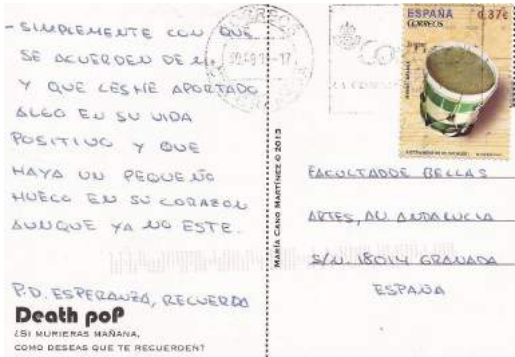 - SIMPLEMENTE CON QUE
SE ACUERDEN DE MI
Y QUE LES HE APORTADO
ALGO EN SU VIDA
POSITIVO Y QUE
HAYA UN PEQUEÑO
HUECO EN SU CORAZON
AUNQUE YA NO ESTE.
P.D. ESPERANZA, RECUERDA
Death pop
¿SI MURIERAS MAÑANA,
COMO DESEAS QUE TE RECUERDEN?
MARÍA CANO MARTÍNEZ © 2013
CORREOS
ESPAÑA 0,37€
CORREOS
FACULTAD DE BELLAS
ARTES, AV. ANDALUCIA
S/N. 18014 GRANADA
ESPAÑA